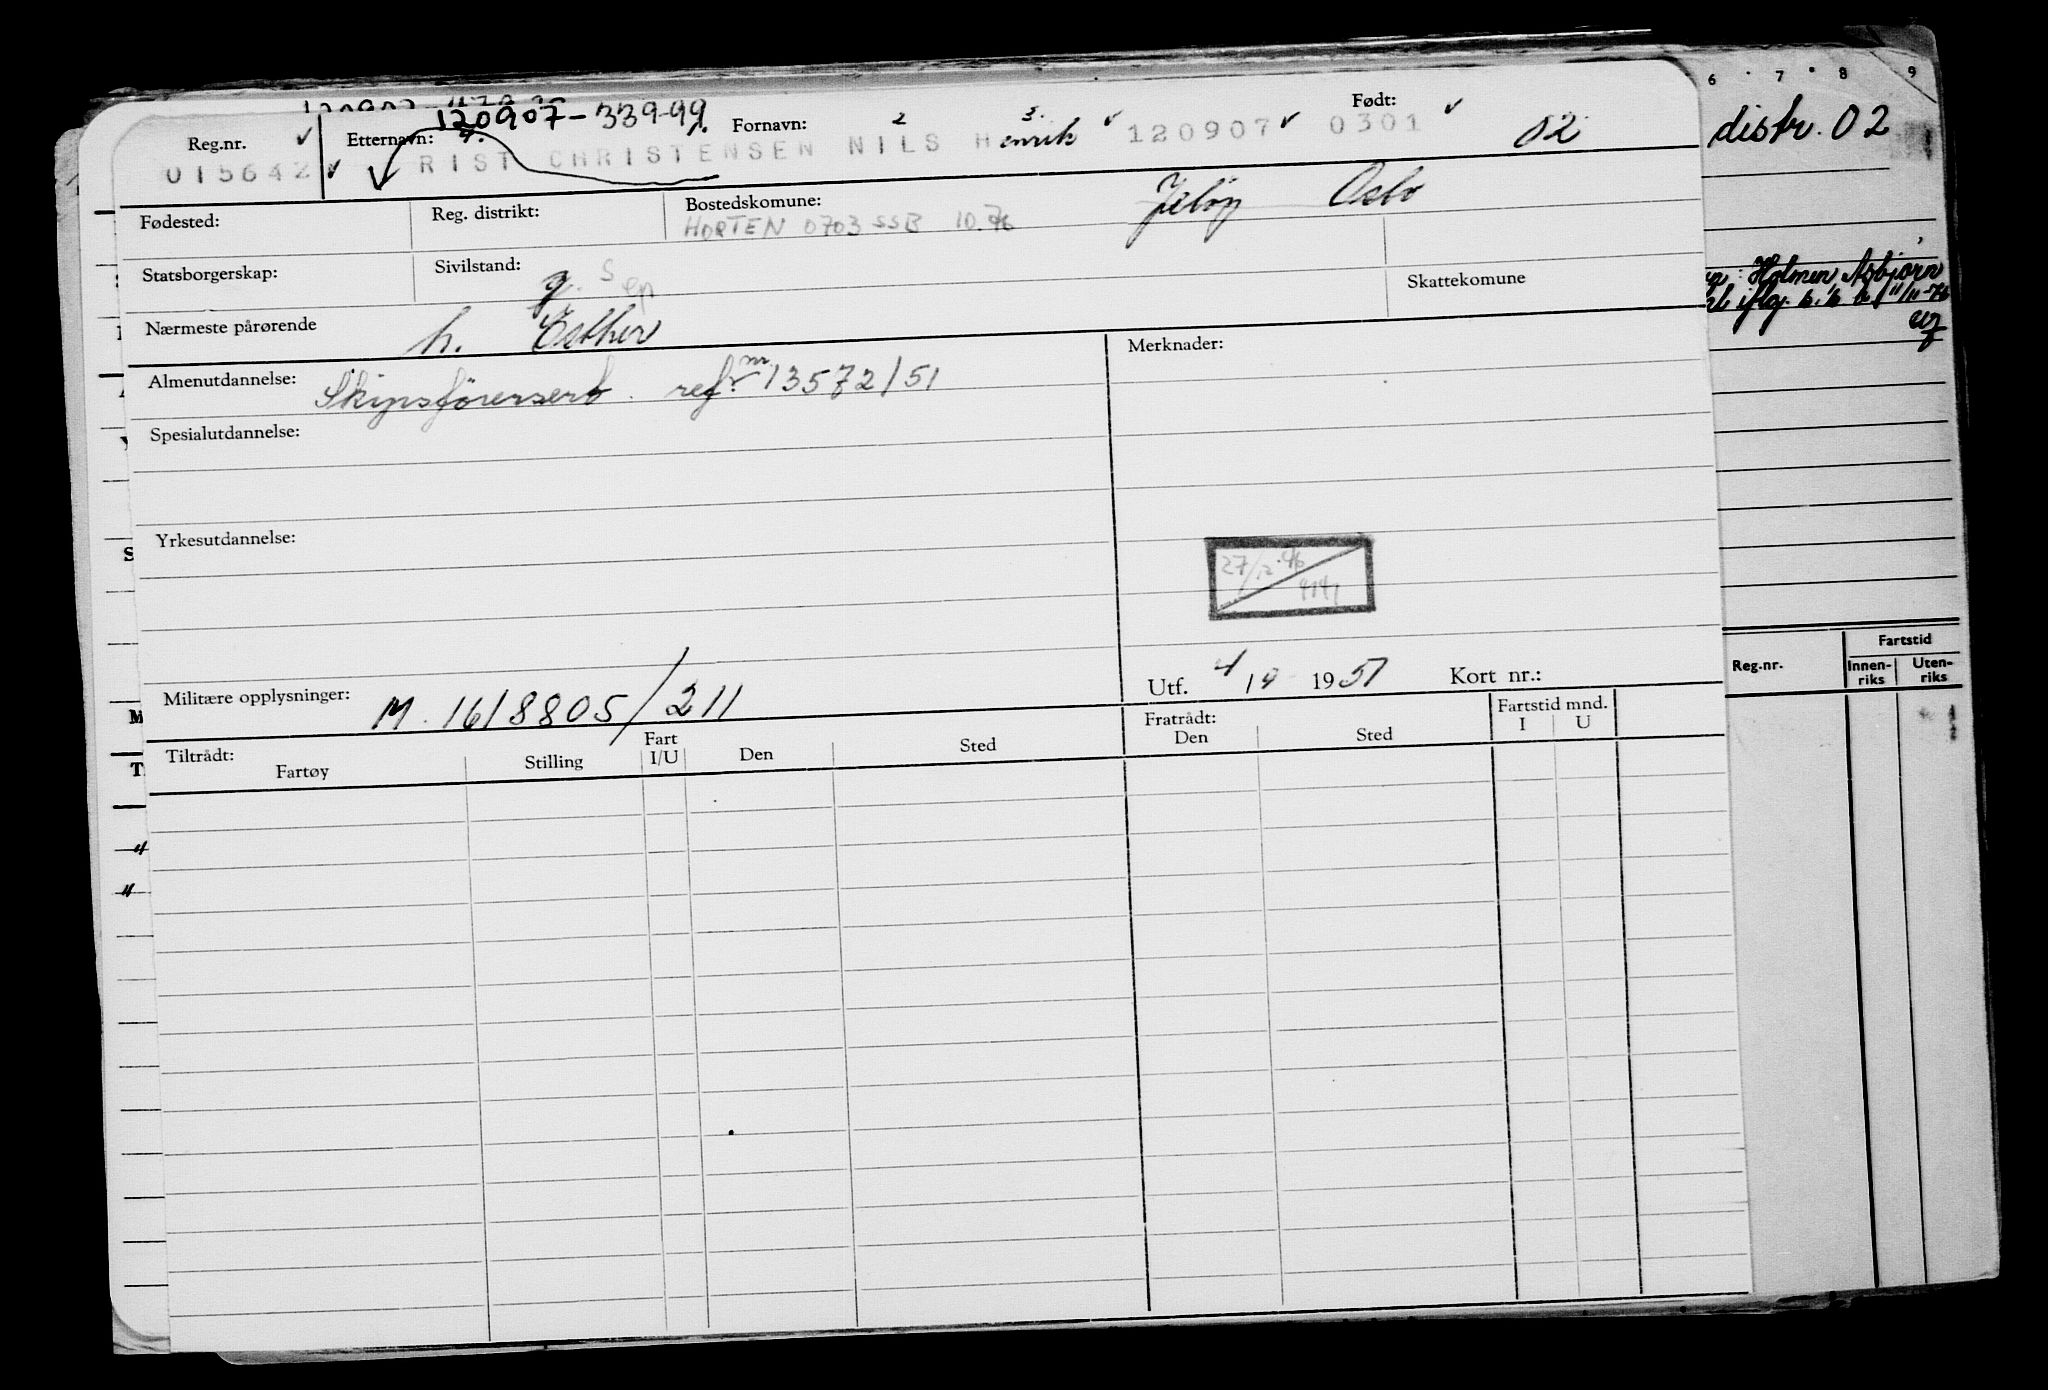 6 7 8 9
120907-33949
Reg.nr. ✓ Etternavn: 4. 1. Fornavn: 2 3. ✓ Født: ✓
015642 ✓ RIST CHRISTENSEN NILS Henrik 120907 ✓ 0301 02 distr. 02
Fødested: Reg. distrikt: Bostedskomune: Jeløy Oslo
HORTEN 0703 SSB 10.76
Statsborgerskap: Sivilstand: g. s Skattekomune
Holmen Asbjørn
iflg. 11/11-76
Nærmeste pårørende h. Esther
Merknader:
Almenutdannelse: Skipsførersert. ref. nr. 13572/51
Spesialutdannelse:
Yrkesutdannelse:
27/12.46
Fartstid
Reg.nr. Innen-riks Uten-riks
Utf. 4/10 1951 Kort nr.:
Militære opplysninger: M. 1618805/211
Tiltrådt: Fratrådt: Fartstid mnd.
Fartøy Stilling Fart I/U Den Sted Den Sted I U